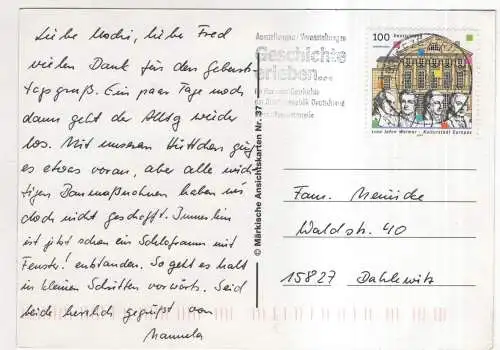 Liebe Uschi, liebe Fred
vielen Dank für den Geburts-
tagsgruß. Ein paar Tage noch
dann geht der Alltag wieder
los. Mit unserem Hüttchen ging
es etwas voran, aber alle wich-
tigen Baumaßnahmen haben wir
doch nicht geschafft. Immerhin
ist jetzt schon ein Schlafraum mit
Fenster! entstanden. So geht es halt
in kleinen Schritten vorwärts. Seid
beide herzlich gegrüßt von
Manuela
© Märkische Ansichtskarten Nr. 37
Ausstellungen / Veranstaltungen
Geschichte
erleben...
Deutschland
100
1100 Jahre Weimar - Kulturstadt Europas
Fam. Meinicke
Waldstr. 40
15827 Dahlewitz